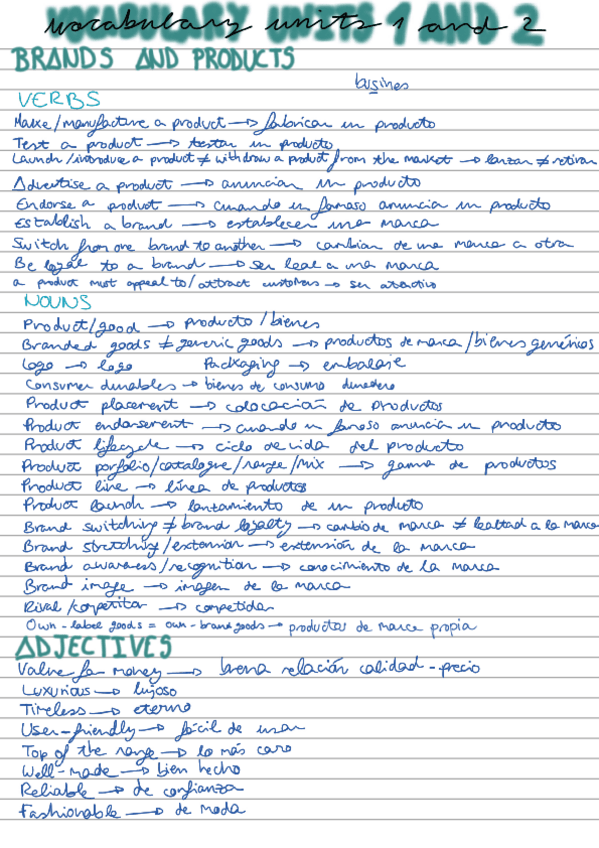 Vocabulary units 1 and 2
BRANDS AND PRODUCTS
busines
VERBS
Make/manufacture a product → fabricar un producto
Test a product → testar un producto
Launch/introduce a product ≠ withdraw a product from the market → lanzar ≠ retirar
Advertise a product → anunciar un producto
Endorse a product → cuando un famoso anuncia un producto
Establish a brand → establecer una marca
Switch from one brand to another → cambiar de una marca a otra
Be loyal to a brand → ser leal a una marca
a product must appeal to/attract customers → ser atractivo
NOUNS
Product/good → producto/bienes
Branded goods ≠ generic goods → productos de marca/bienes genéricos
Logo → logo Packaging → embalaje
Consumer durables → bienes de consumo duradero
Product placement → colocación de productos
Product endorsement → cuando un famoso anuncia un producto
Product lifecycle → ciclo de vida del producto
Product porfolio/catalogue/range/mix → gama de productos
Product line → línea de productos
Product launch → lanzamiento de un producto
Brand switching ≠ brand loyalty → cambio de marca ≠ lealtad a la marca
Brand stretching/extension → extensión de la marca
Brand awareness/recognition → conocimiento de la marca
Brand image → imagen de la marca
Rival/competitor → competidor
Own-label goods = own-brand goods → productos de marca propia
ADJECTIVES
Value for money → buena relación calidad-precio
Luxurious → lujoso
Timeless → eterno
User-friendly → fácil de usar
Top of the range → lo más caro
Well-made → bien hecho
Reliable → de confianza
Fashionable → de moda